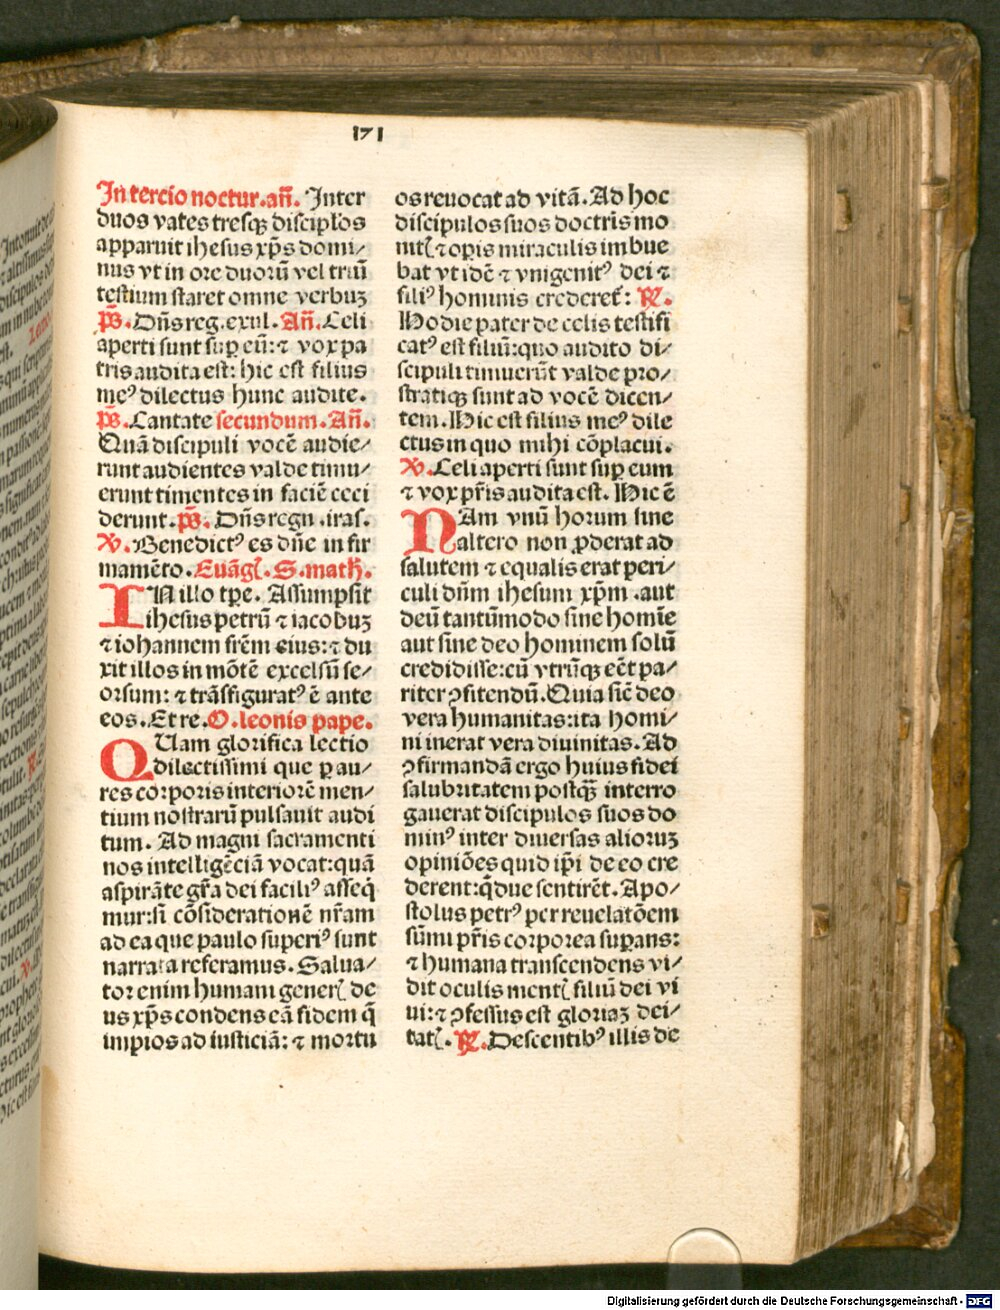 171
In tercio noctur.añ. Inter
duos vates tresqꝫ discipłos
apparuit ihesus xp̄s domi⸗
nus vt in ore duorū vel triū
testium staret omne verbuꝫ
p̄s. Dñs reg.exul. Añ. Celi
aperti sunt suꝑ eū: ⁊ vox pa
tris audita est: hic est filius
meꝰ dilectus hunc audite.
p̄s. Cantate secundum. Añ.
Quā discipuli vocē audie⸗
runt audientes valde timu⸗
erunt timentes in faciē ceci
derunt. p̄s. Dñs regn .iras.
℣. Benedictꝰ es dñe in fir
mamēto. Euāgł. S. math.
IN illo tꝑe. Assumpsit
ihesus petrū ⁊ iacobuꝫ
⁊ iohannem frēm eius: ⁊ du
xit illos in mōtē excelsū se⸗
orsum: ⁊ trāsfiguratꝰ ē ante
eos. Et re. O. leonis pape.
QUam glorifica lectio
dilectissimi que ꝑ au⸗
res corporis interiorē men⸗
tium nostrarū pulsauit audi
tum. Ad magni sacramenti
nos intelligēciā vocat: quā
aspirāte gr̄a dei faciliꝰ asseq̄
mur: si cōsiderationē nr̄am
ad ea que paulo superiꝰ sunt
narrata referamus. Salua⸗
tor enim humani generꝭ de
us xp̄s condens eā fidem q̄
impios ad iusticiā: ⁊ mortu
os reuocat ad vitā. Ad hoc
discipulos suos doctris mo
nitꝭ ⁊ oꝑis miraculis imbue
bat vt idē ⁊ vnigenitꝰ dei ⁊
filiꝰ hominis crederet̄: ℟.
Hodie pater de celis testifi
catꝰ est filiū: quo audito di⸗
scipuli timuerūt valde pro⸗
stratiqꝫ sunt ad vocē dicen⸗
tem. Hic est filius meꝰ dile
ctus in quo mihi cōplacui.
℣. Celi aperti sunt suꝑ eum
⁊ vox pr̄is audita est. Hic ē
NAm vnū horum sine
altero non ꝓderat ad
salutem ⁊ equalis erat peri⸗
culi dn̄m ihesum xp̄m .aut
deū tantūmodo sine homīe
aut sine deo hominem solū
credidisse: cū vtrūqꝫ eēt pa⸗
riter ꝯfitendū. Quia sic̄ deo
vera humanitas: ita homi⸗
ni inerat vera diuinitas. Ad
ꝯfirmandā ergo huius fidei
salubritatem postqꝫ̄ interro
gauerat discipulos suos do
minꝰ inter diuersas alioruꝫ
opiniōes quid ip̄i de eo cre
derent: q̄due sentirēt. Apo⸗
stolus petrꝰ per reuelatōem
sūmi pr̄is corporea suꝑans:
⁊ humana transcendens vi⸗
dit oculis mentꝭ filiū dei vi
ui: ⁊ ꝯfessus est gloriaꝫ dei⸗
tatꝭ. ℟. Descentibꝰ illis de
Digitalisierung gefördert durch die Deutsche Forschungsgemeinschaft - DFG